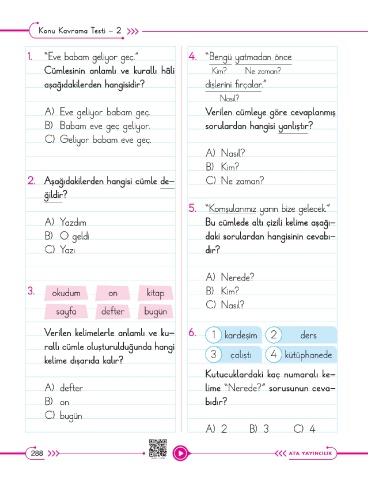 Konu Kavrama Testi - 2
1. "Eve babam geliyor geç."
Cümlesinin anlamlı ve kurallı hâli
aşağıdakilerden hangisidir?
A) Eve geliyor babam geç.
B) Babam eve geç geliyor.
C) Geliyor babam eve geç.
2. Aşağıdakilerden hangisi cümle de-
ğildir?
A) Yazdım
B) O geldi
C) Yazı
3. okudum on kitap
sayfa defter bugün
Verilen kelimelerle anlamlı ve ku-
rallı cümle oluşturulduğunda hangi
kelime dışarıda kalır?
A) defter
B) on
C) bugün
4. "Bengü yatmadan önce
Kim? Ne zaman?
dişlerini fırçalar."
Nasıl?
Verilen cümleye göre cevaplanmış
sorulardan hangisi yanlıştır?
A) Nasıl?
B) Kim?
C) Ne zaman?
5. "Komşularımız yarın bize gelecek."
Bu cümlede altı çizili kelime aşağı-
daki sorulardan hangisinin cevabı-
dır?
A) Nerede?
B) Kim?
C) Nasıl?
6. 1 kardeşim 2 ders
3 çalıştı 4 kütüphanede
Kutucuklardaki kaç numaralı ke-
lime "Nerede?" sorusunun ceva-
bıdır?
A) 2 B) 3 C) 4
288
ATA YAYINCILIK